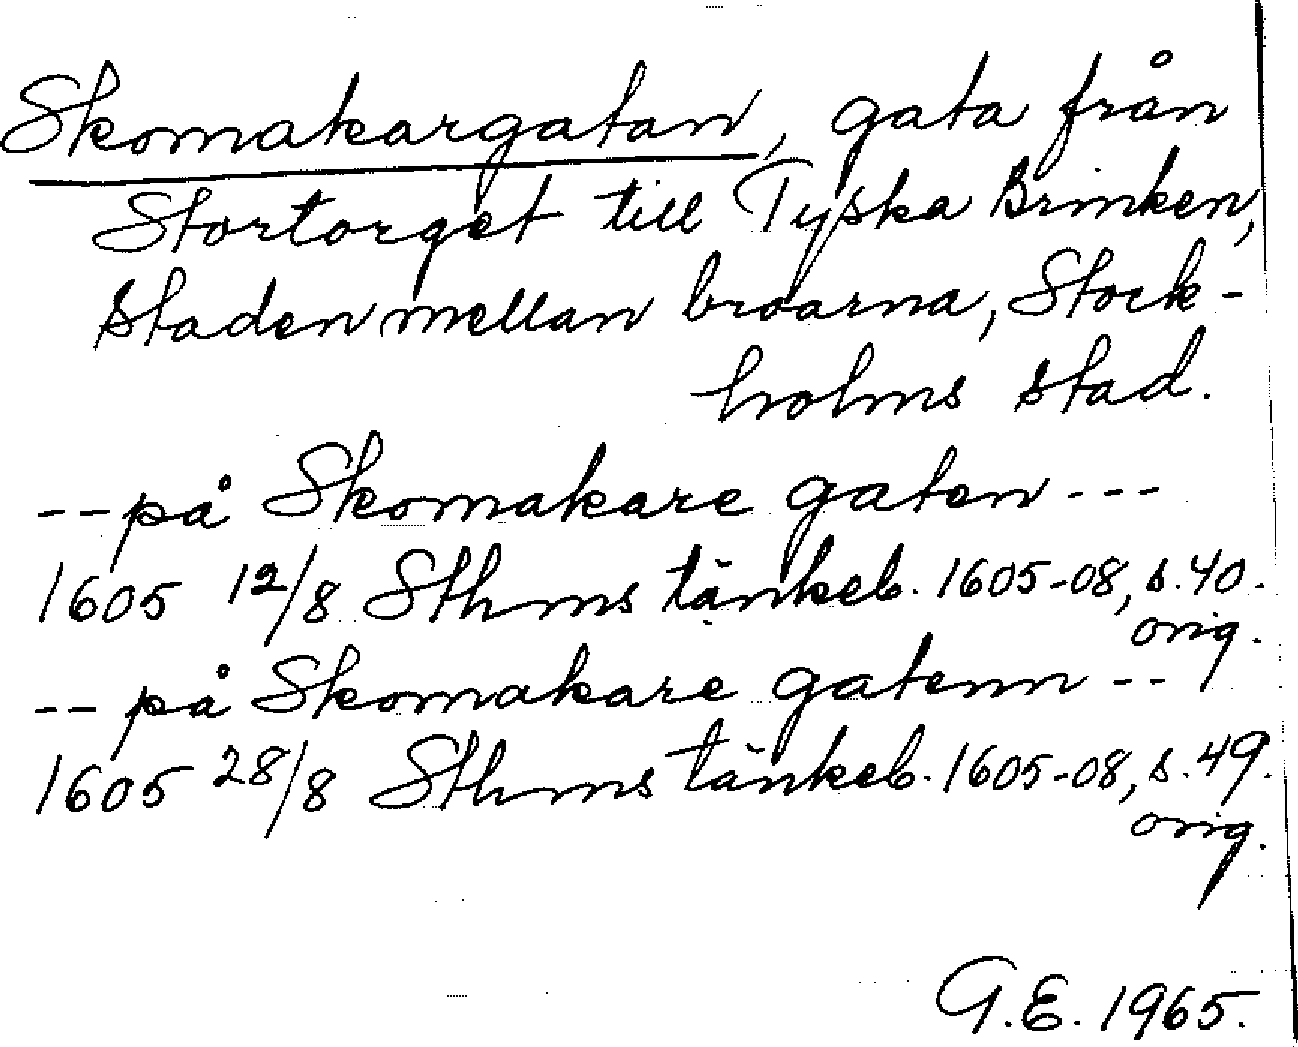 Skomakargatan, gata från
Stortorget till Tyska Brinken,
staden mellan broarna, Stock-
holms stad.
-- på Skomakare gaten ---
1605 12/8 Sthms tänkeb. 1605-08, s. 40.
orig.
-- på Skomakare gatenn --
1605 28/8 Sthms tänkeb. 1605-08, s. 49.
orig.
G.E. 1965.